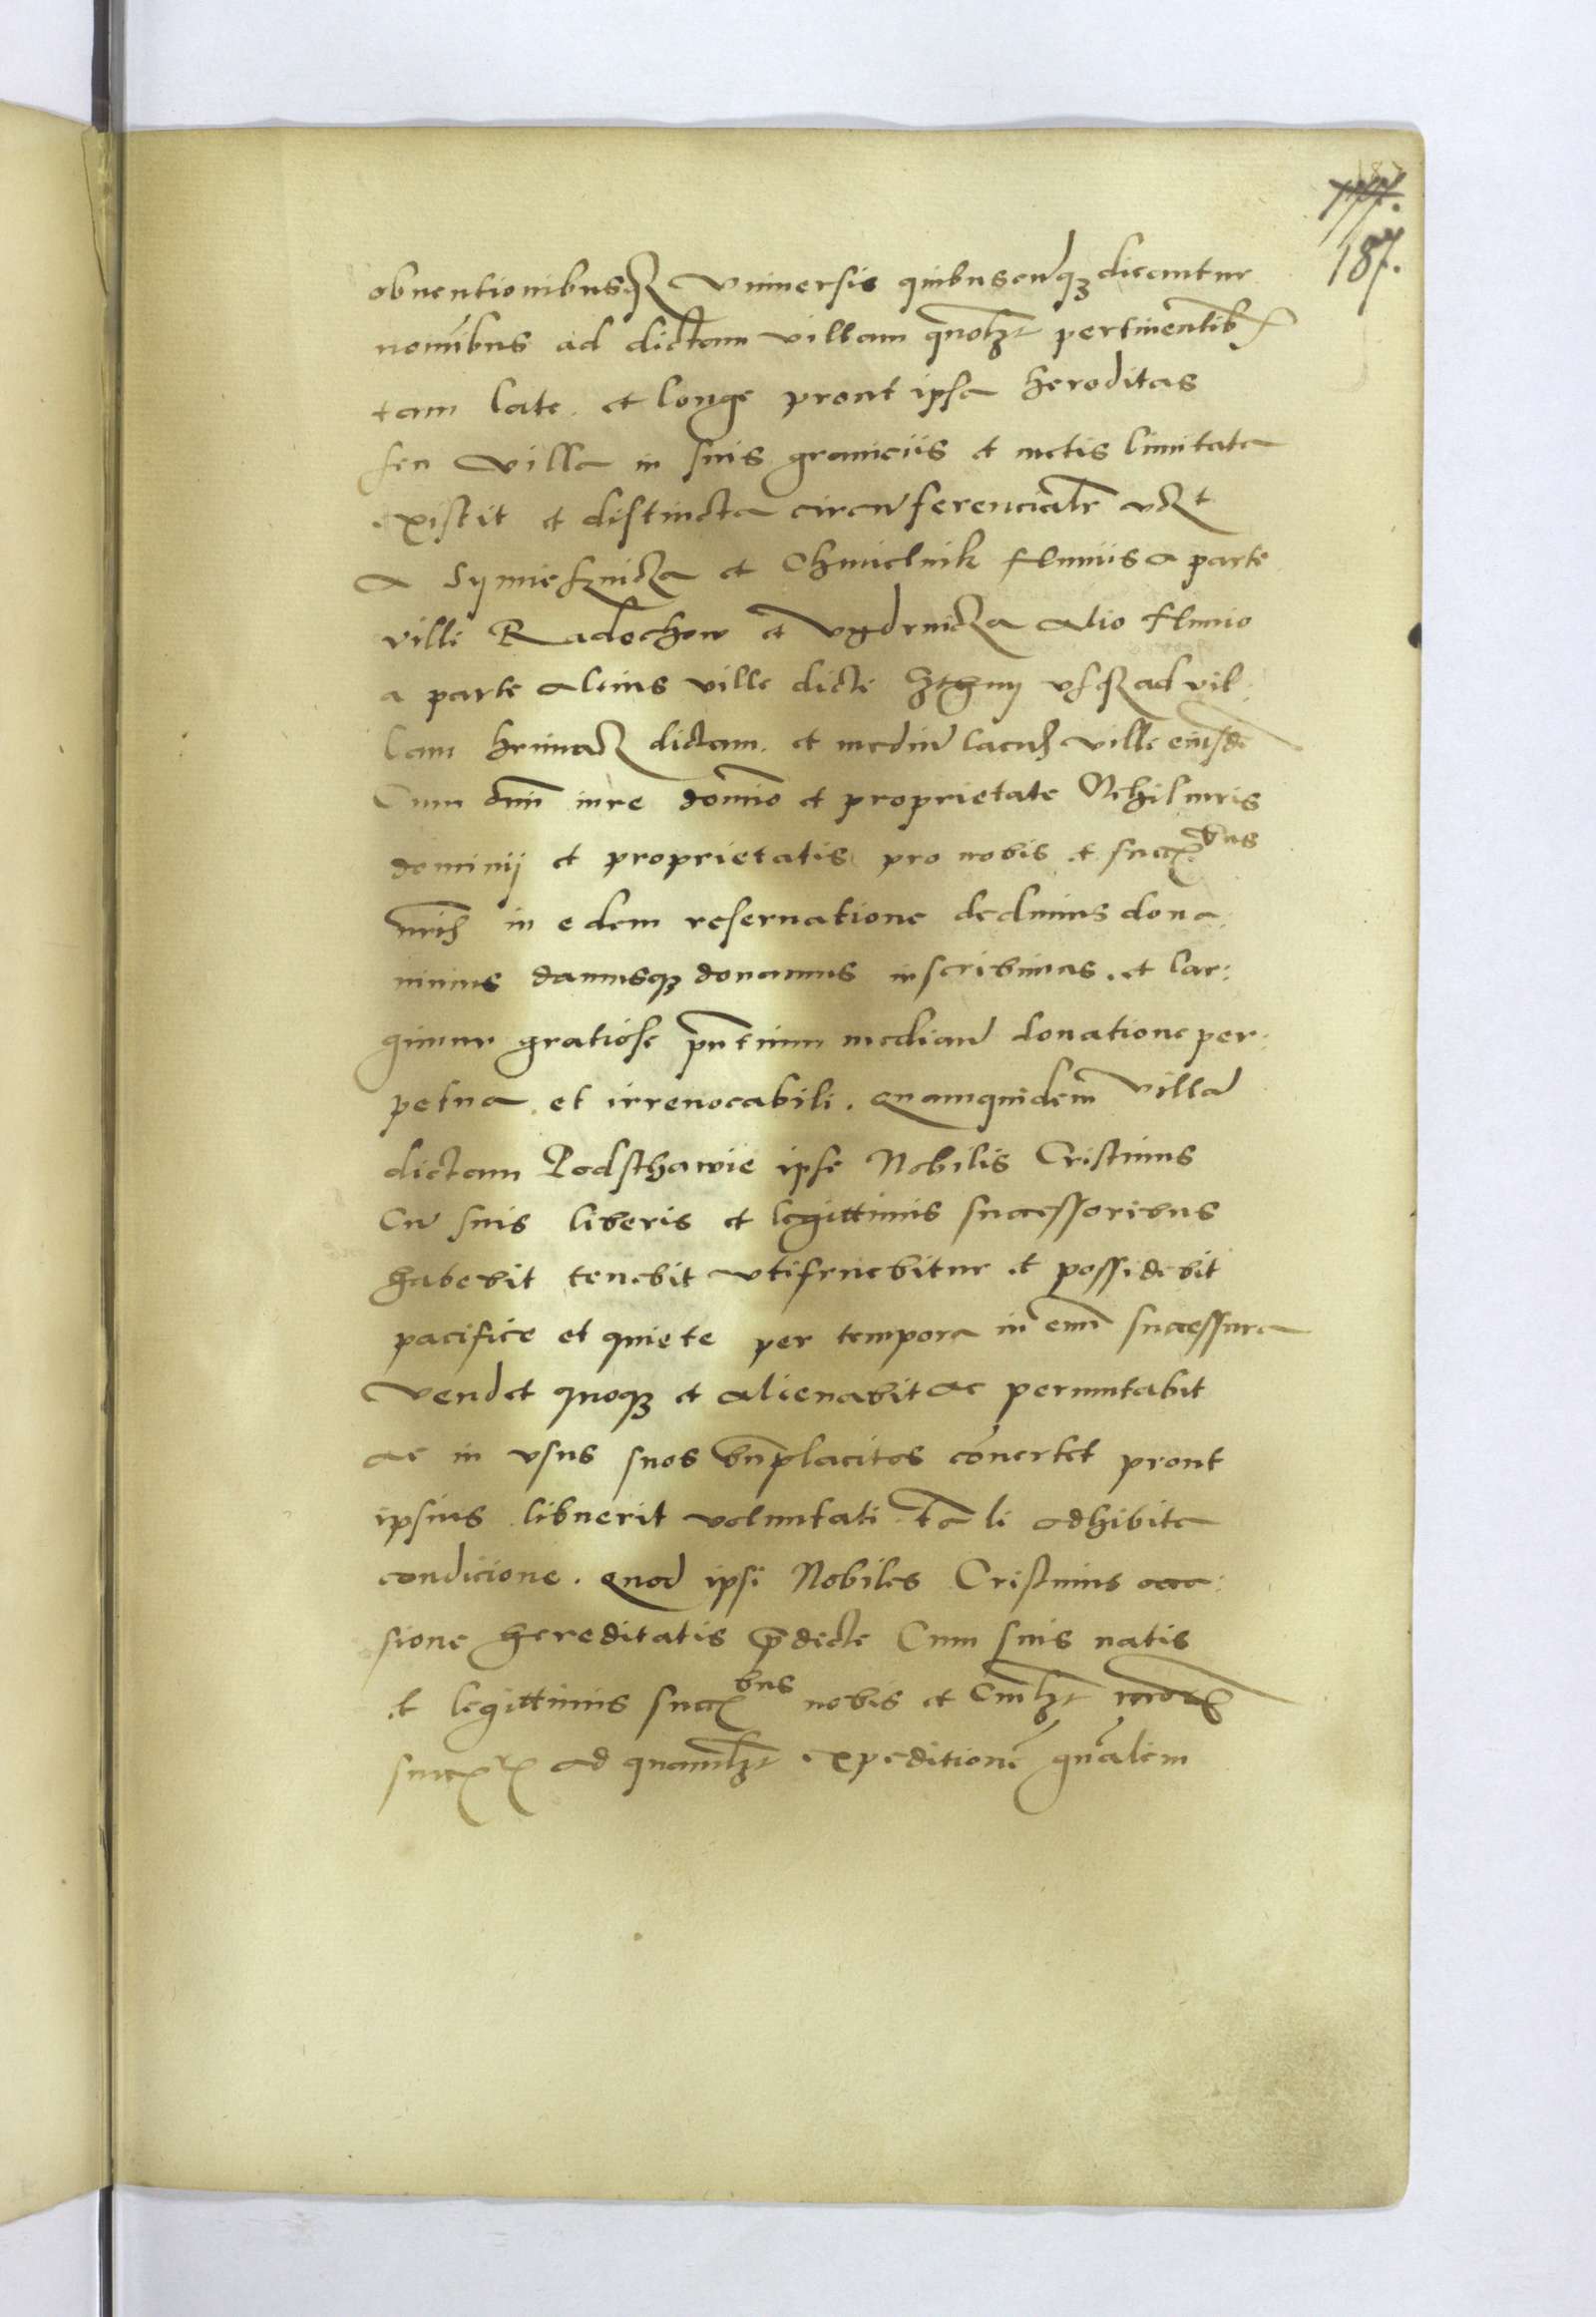 187.
obuentionibusq₃ Vniuersis quibuscu̅q₃ dicantur
nomı̅bus ad dictam villam quolꝫt pertinentib₉
tam late et longe prout ipsa hereditas
seu villa in suis graniciis et metis limitata
existit et distincta circu̅ferencialr̅ vꝫt
a Symiesznicza et Chmielnik fluuiis a parte
ville Radochow et Vgdrnicza alio fluuio
a parte alius ville dicte vsq₃ ad vil-
lam dictam et mediu̅ lacus ville eiusde̅
Cum om̅i iure domı̅o et proprietate Nihil iuris
dominij et proprietatis pro nobis et succ.bus
nr̅is in edem reseruatione dedimus dona-
uimus damusq₃ donamus inscribimus et lar:
gimur gratiose pn̅tium median̅ donatione per:
petua et irreuocabili. Quamquidem villa̅
dictam Podsthawie ipse Nobilis Cristinus
Cu̅ suis liberis et legittimis successoribus
habebit tenebit vtifruebitur et possidebit
pacifice et quiete per tempora in eu̅m successura
Vendet quoq₃ et alienabit ac permutabit
ac in vsus suos bn̅placitos co̅uertet prout
ipsius libuerit voluntati tali adhibita
condicione. Quod ipsi Nobiles Cristinus occa:
sione hereditatis p̅dicte Cum suis natis
et legittimis succ.bus nobis et
ad quamlꝫt expeditione̅ gn̅alem